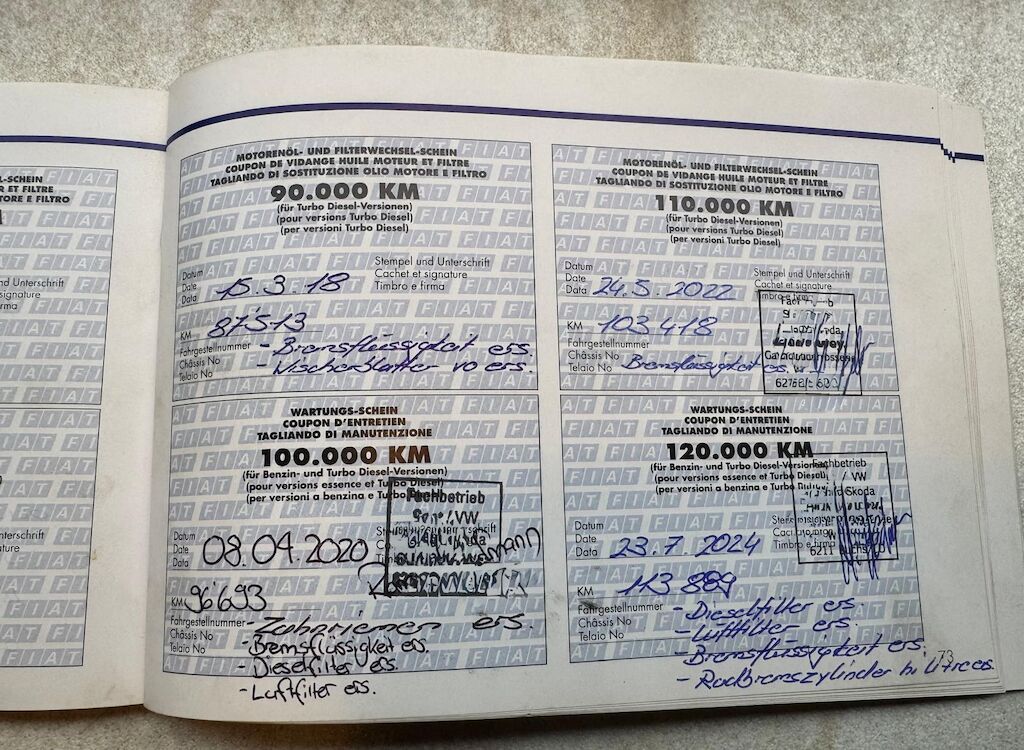 L-SCHEIN
R ET FILTRE
TORE E FILTRO
M
nterschrift
ature
rma
nterschrift
ature
MOTORENÖL- UND FILTERWECHSEL-SCHEIN
COUPON DE VIDANGE HUILE MOTEUR ET FILTRE
TAGLIANDO DI SOSTITUZIONE OLIO MOTORE E FILTRO
90.000 KM
(für Turbo Diesel-Versionen)
(pour versions Turbo Diesel)
(per versioni Turbo Diesel)
Datum
Date
Data 15.3.18
Stempel und Unterschrift
Cachet et signature
Timbro e firma
KM 87'513
Fahrgestellnummer
Châssis No
Telaio No
- Bremsflüssigkeit ers.
- Wischerblätter vo ers.
WARTUNGS-SCHEIN
COUPON D'ENTRETIEN
TAGLIANDO DI MANUTENZIONE
100.000 KM
(für Benzin- und Turbo Diesel-Versionen)
(pour versions essence et Turbo Diesel)
(per versioni a benzina e Turbo
Fachbetrieb
VW
Datum
Date
Data 08.04.2020
KM 96'693
Fahrgestellnummer
Châssis No
Telaio No
- Zahnriemen ers.
- Bremsflüssigkeit ers.
- Dieselfilter ers.
- Luftfilter ers.
MOTORENÖL- UND FILTERWECHSEL-SCHEIN
COUPON DE VIDANGE HUILE MOTEUR ET FILTRE
TAGLIANDO DI SOSTITUZIONE OLIO MOTORE E FILTRO
110.000 KM
(für Turbo Diesel-Versionen)
(pour versions Turbo Diesel)
(per versioni Turbo Diesel)
Datum
Date
Data 24.5.2022
Stempel und Unterschrift
Cachet et signature
Timbro e firma
KM 103 418
Fahrgestellnummer
Châssis No
Telaio No Bremsflüssigkeit ers.
WARTUNGS-SCHEIN
COUPON D'ENTRETIEN
TAGLIANDO DI MANUTENZIONE
120.000 KM
(für Benzin- und Turbo Diesel-Versionen)
(pour versions essence et Turbo Diesel)
(per versioni a benzina e Turbo
Fachbetrieb
VW
Skoda
Datum
Date
Data 23.7.2024
Timbro e
6211 Buchs LU
KM 113 889
Fahrgestellnummer
Châssis No
Telaio No
- Dieselfilter ers.
- Luftfilter ers.
- Bremsflüssigkeit ers.
- Radbremszylinder hi. ers
73